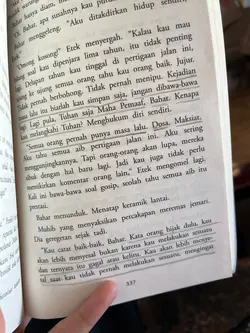 Bahar menggeleng. "Aku ditakdirkan hidup
"Omong kosong!" Etek menyergah. "Kalau kau mau
kau bisa dipenjara lima tahun, itu tidak penting
tahun kau tinggal di perigian jalan ini,
semua orang tahu kau orang baik. Jujur.
Tidak pernah berbohong. Tidak pernah menipu. Kejadian
lalu itu biarlah kau simpan saja, jangan dibawa-bawa
lagi. Lagi pula, Tuhan saja Maha Pemaaf, Bahar. Kenapa
kau melangkahi Tuhan? Menghukum diri sendiri.
"Semua orang pernah punya masa lalu. Dosa. Maksiat.
Aku tahu semua aib perigian jalan ini." Etek mengomel lagi,
menggunjingkannya. Tapi orang-orang akan lupa, mereka
sibuk dengan hal baru lagi. Jadi kau juga tidak perlu
memikirkan komentar orang lain."
Kali ini bawa-bawa soal gosip, seolah tahu semua aib itu
prestasi.
Bahar menunduk. Menatap keramik lantai.
Muhib yang menyaksikan percakapan meremas jemari.
Dia geregetan sejak tadi.
"Kau catat baik-baik, Bahar. Kata orang bijak dulu, kau
akan lebih menyesal bukan karena kau melakukan sesuatu
dan ternyata itu gagal atau keliru. Kau akan lebih menye-
sal saat kau tidak pernah melakukan sesuatu, mengingat
337